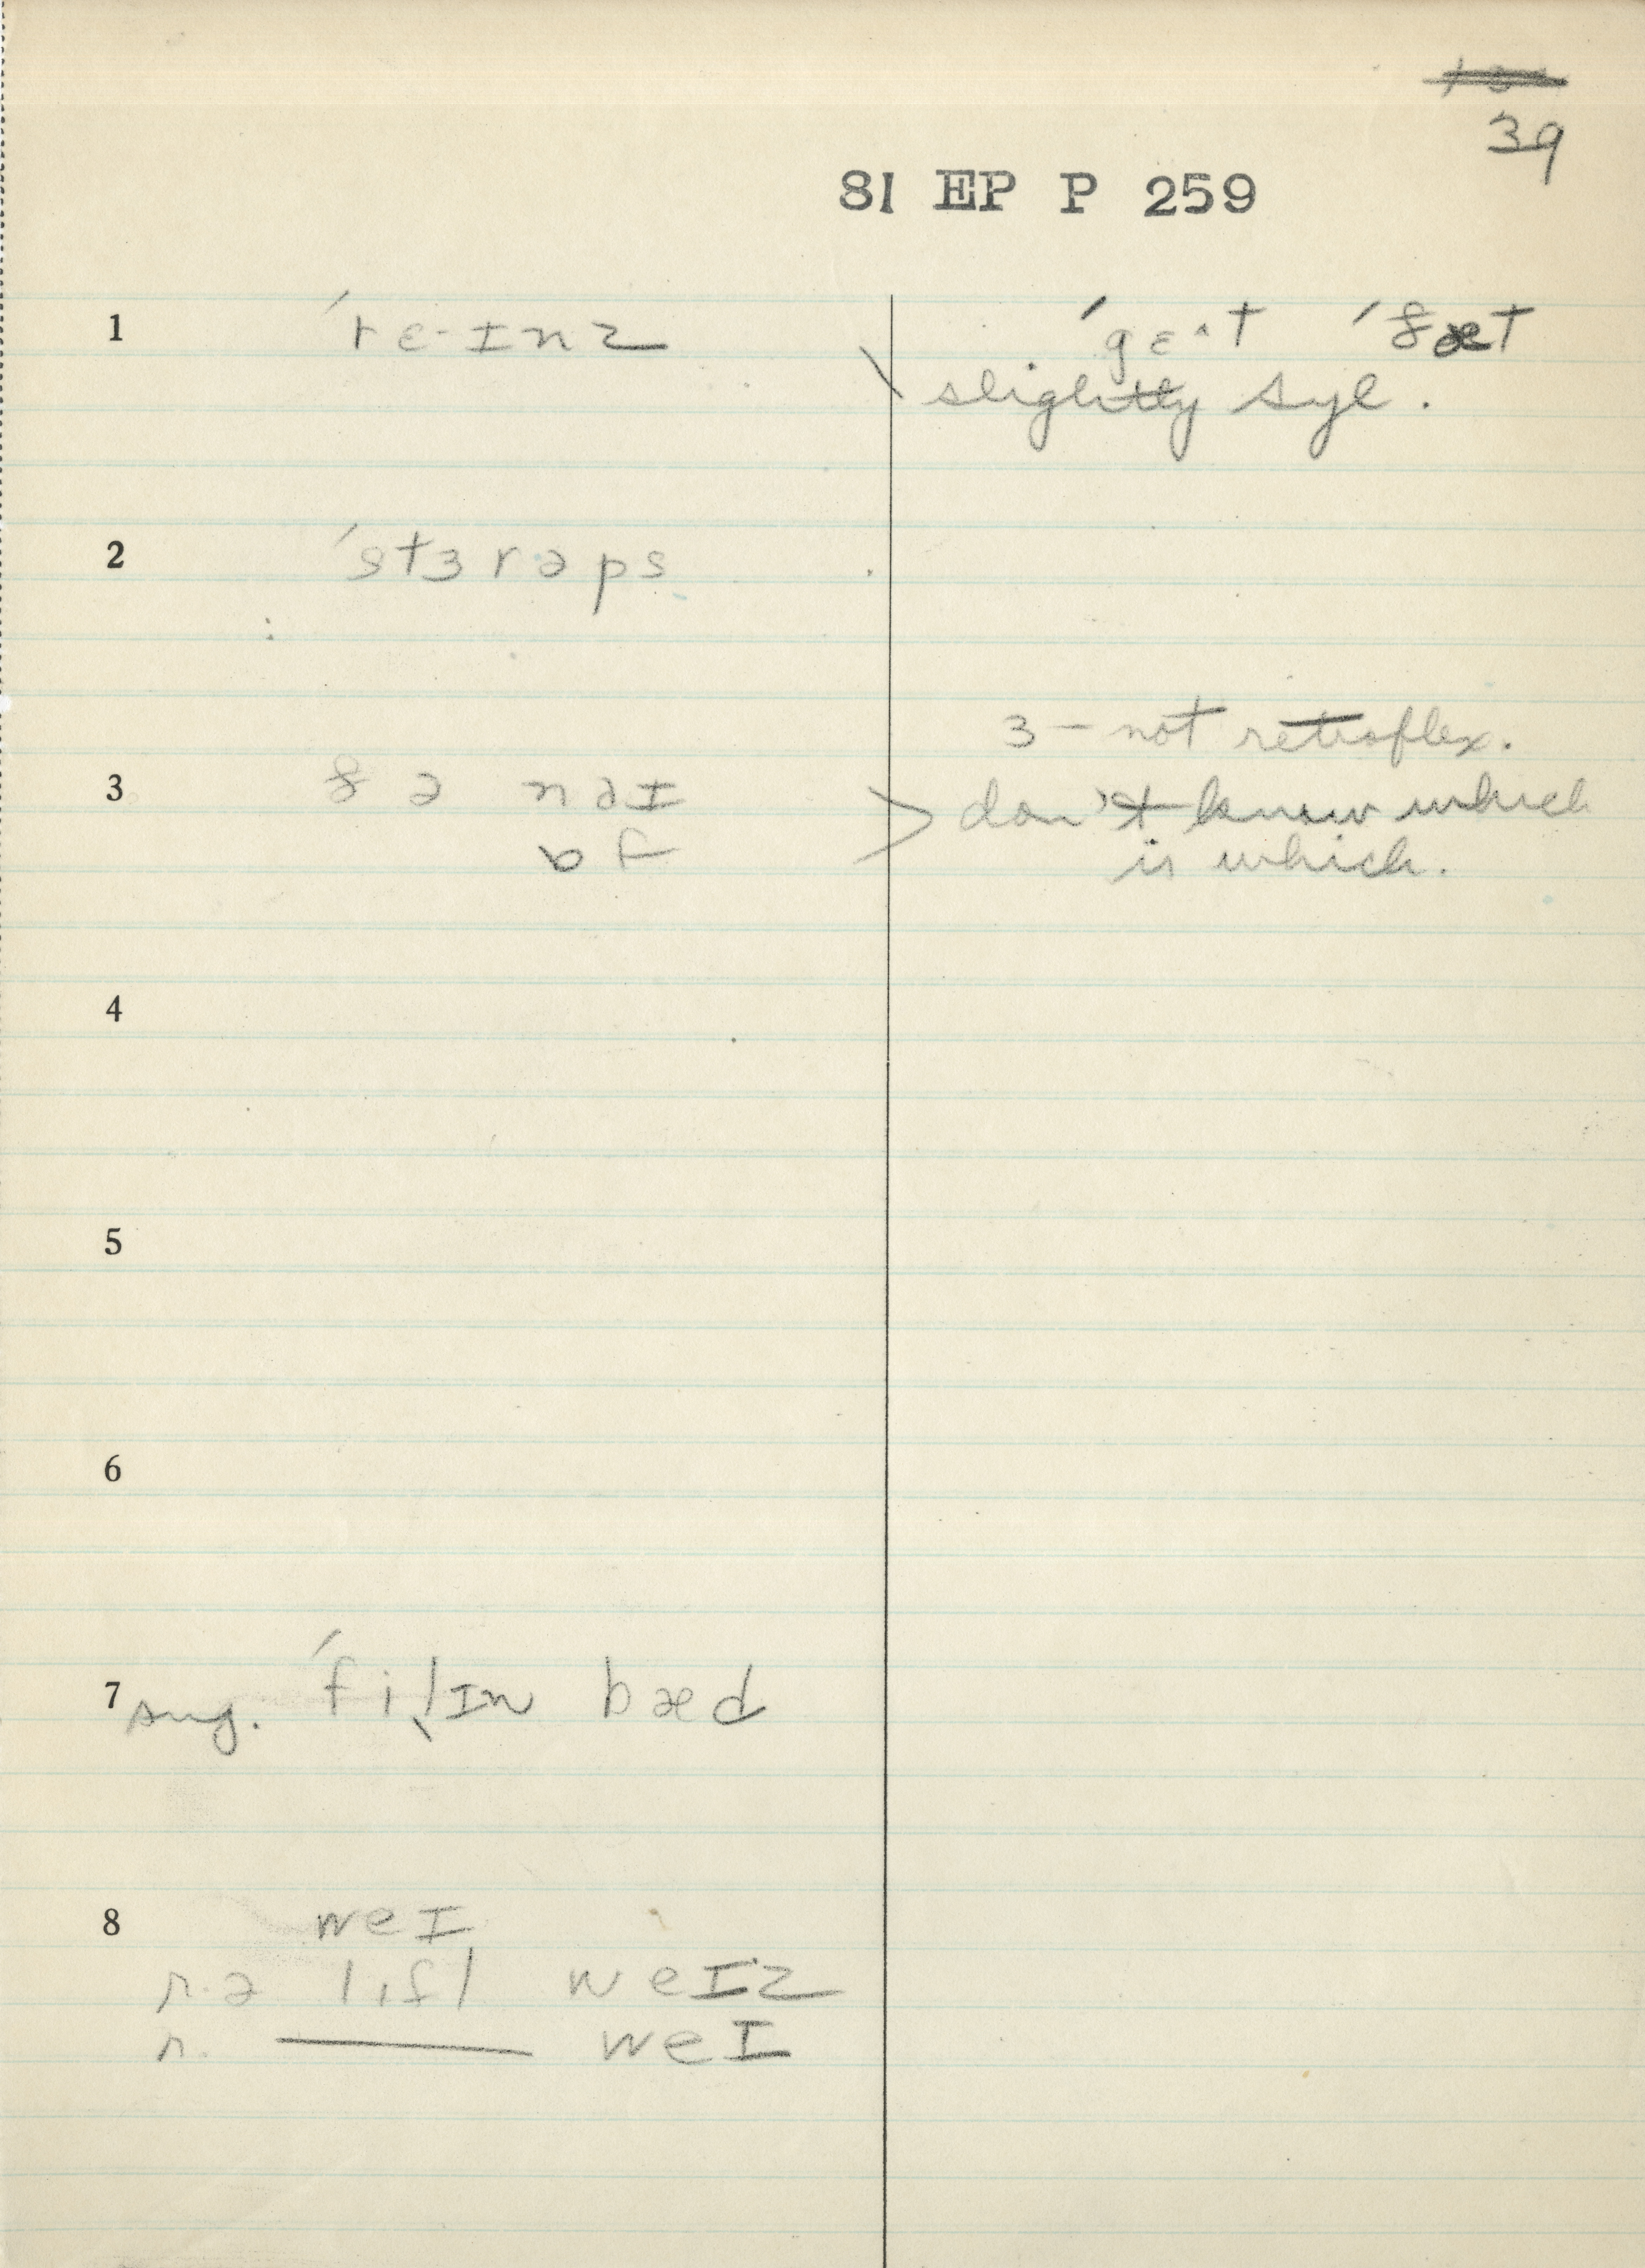 39
81 EP P 259
1 ˈrɛ·ɪnz ˈgɛˑt ˈðæt
slightly syl.
2 ˈstɜrəps
3 — not retroflex.
3 ðə naɪ don't know which
ɒf is which.
4
5
6
7 sug. ˈfilɪn bæd
8 weɪ
r. ə weɪz
r. weɪ